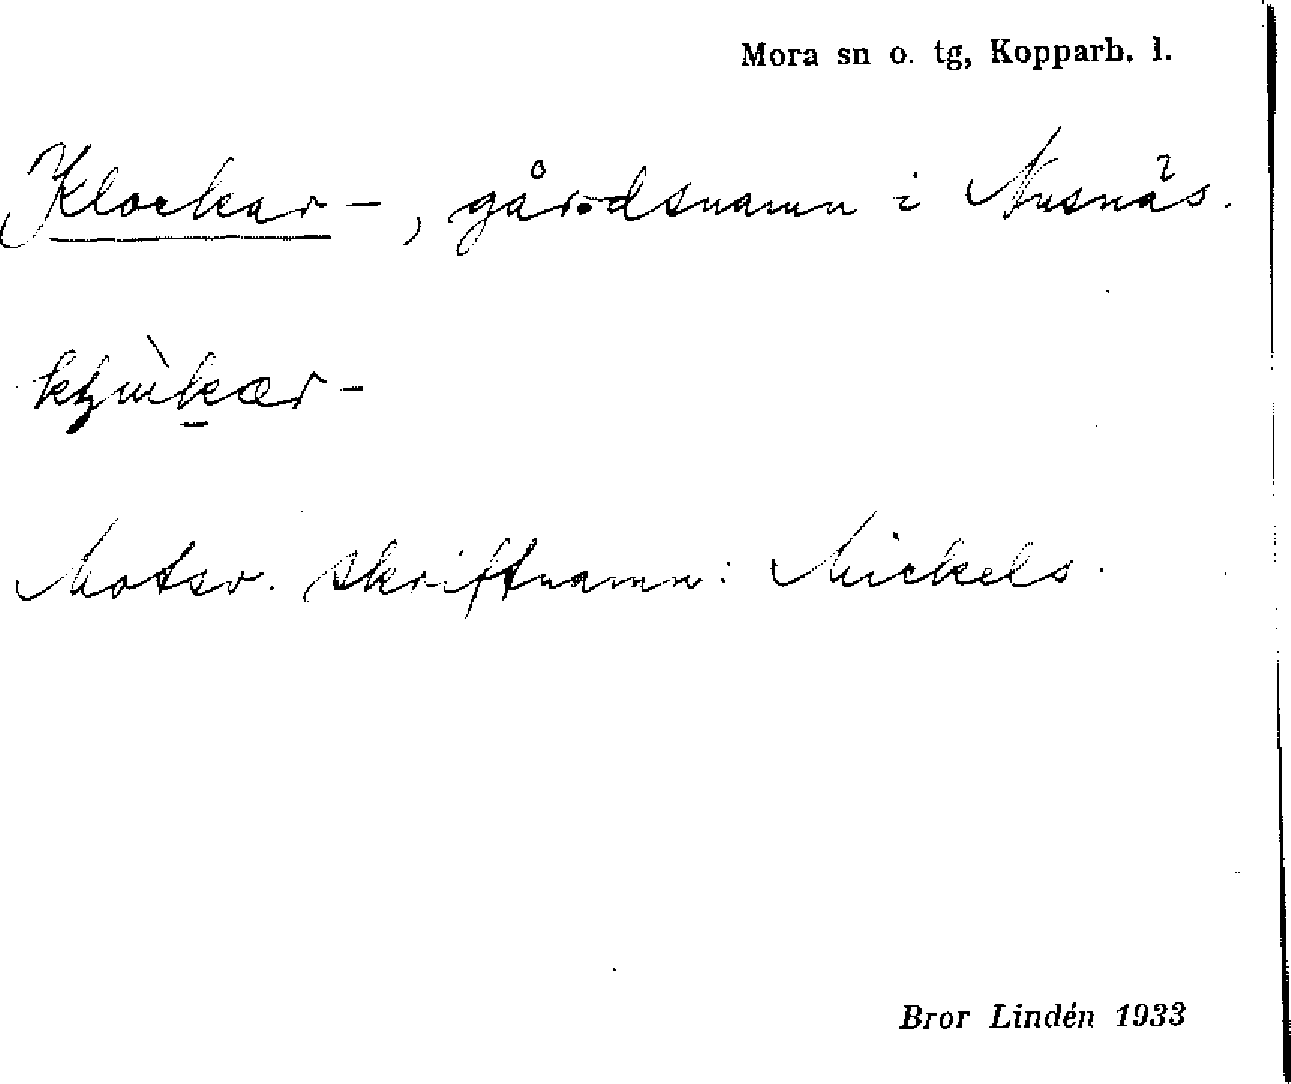 Mora sn o. tg, Kopparb. l.
Klockar-, gårdsnamn i Nusnäs.
Motsv. skriftnamn: Mickels.
Bror Lindén 1933